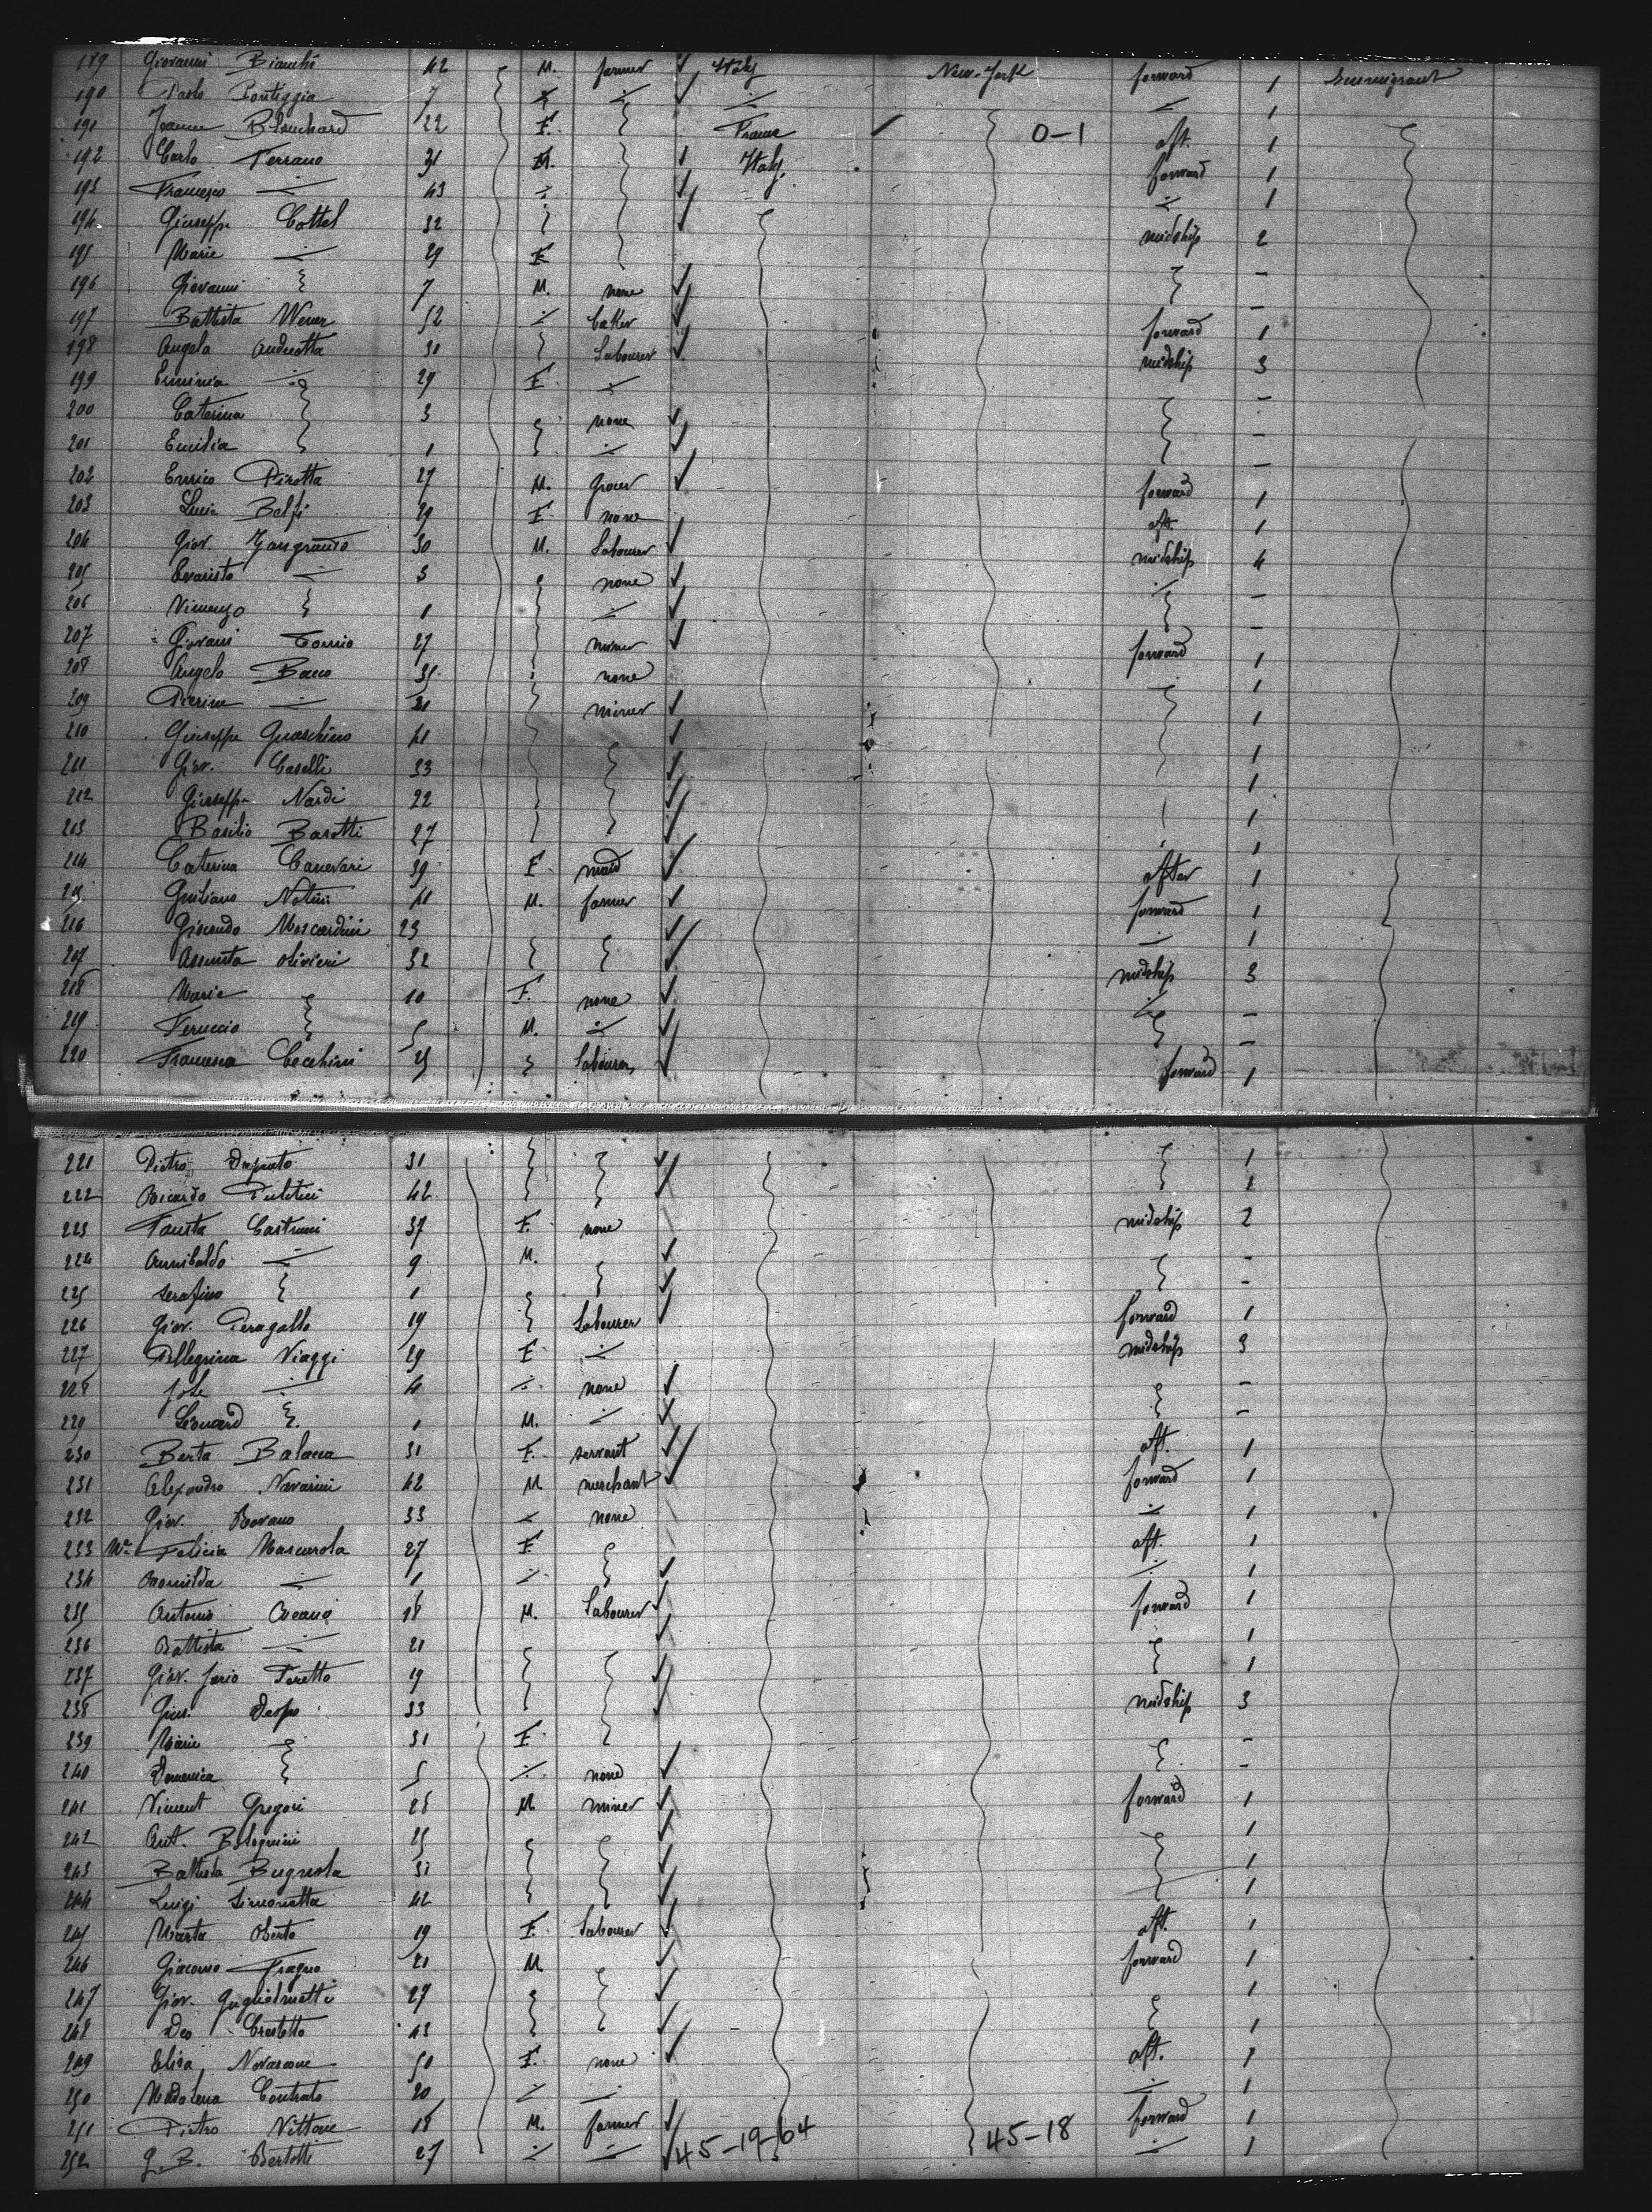 189 Giovanni Bianchi 42 M. farmer ✓ Italy New-York forward 1 Immigrant
190 Paolo Pontiggia 7 ⁒ ⁒ ✓ ⁒ ⁒ 1
191 Jeanne Blanchard 22 F. France 0-1 aft. 1
192 Carlo Ferrano 31 M. ✓ Italy forward 1
193 Francesco ⁒ 43 ⁒ ✓ ⁒ 1
194 Giuseppe Cottel 32 ✓ midship 2
195 Marie ⁒ 29 F. -
196 Giovanni 7 M. none ✓ -
197 Battista Wener 52 ⁒ baker ✓ forward 1
198 Angelo Andreotta 31 Labourer ✓ midship 3
199 Erminia ⁒ 29 F. ⁒ -
200 Caterina 3 none ✓ -
201 Emilia 1 ⁒ ✓ -
202 Enrico Pirotta 27 M. grocer ✓ forward 1
203 Belfi 29 F. none aft. 1
204 Giov. Zangrando 30 M. Labourer ✓ midship 4
205 Evaristo ⁒ 3 none ✓ ⁒ -
206 Vincenzo 1 ⁒ ✓ -
207 Giovani 27 miner ✓ forward 1
208 Angelo Bacco 35 none 1
209 ⁒ 21 miner ✓ 1
210 Giuseppe Guaschino 41 ✓ 1
211 Giov. Caselli 33 ✓ 1
212 Giuseppe Nardi 22 ✓ 1
213 Basilio Barotti 27 ✓ 1
214 Caterina Canevari 39 F. maid ✓ after 1
215 Giuliano Notini 41 M. farmer ✓ forward 1
216 Giocondo Moscardini 23 ✓ ⁒ 1
217 Assunta olivieri 32 ✓ midship 3
218 Marie 10 F. none ✓ ⁒ -
219 Feruccio 5 M. ⁒ ✓ -
220 Francesco Cecchini 25 Labourer ✓ forward 1
221 Pietro 31 ✓ 1
222 Ricardo 42 ✓ 1
223 Fausta Castrucci 37 F. none midship 2
224 Annibaldo ⁒ 9 M. ✓ -
225 Serafino 1 ✓ -
226 Giov. Peragallo 19 Labourer ✓ forward 1
227 Pellegrina Viaggi 29 F. ⁒ midship 3
228 Jole ⁒ 4 ⁒ none ✓ -
229 Léonard 1 M. ⁒ ✓ -
230 Berta Balacca 31 F. servant ✓ aft. 1
231 Alexandro Navarini 42 M merchant ✓ forward 1
232 Giov. Rovano 33 ⁒ none ⁒ 1
233 Felicia Mascarola 27 F. aft. 1
234 Romilda ⁒ 1 ⁒ ✓ ⁒ 1
235 Antonio 18 M. Labourer ✓ forward 1
236 Battista ⁒ 21 ✓ 1
237 Giov. Feretto 19 ✓ 1
238 Gius. 33 ✓ midship 3
239 Marie 31 F. -
240 Domenica 5 ⁒ none ✓ -
241 Vincent Gregori 28 M miner ✓ forward 1
242 Ant. Bolognini 25 ✓ 1
243 Battista Bugnola 31 ✓ 1
244 Luigi Simonetta 42 ✓ 1
245 Marta Oberto 19 F. Labourer ✓ aft. 1
246 Giacomo Fragno 21 M. ✓ forward 1
247 Giov. Guglielmetti 27 ✓ 1
248 Deo Crestetto 43 ✓ 1
249 Elisa Novascone 50 F. none ✓ aft. 1
250 Madalena Contrato 20 ⁒ ⁒ ⁒ 1
251 Pietro Vittone 18 M. farmer ✓ forward 1
252 G.B. Bertotti 27 ⁒ ⁒ ✓ 45-19-64 45-18 ⁒ 1